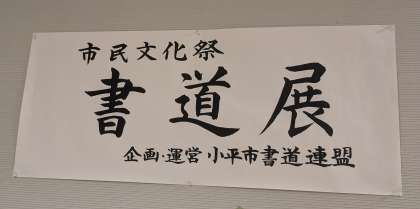 市民文化祭
書道展
企画・運営 小平市書道連盟